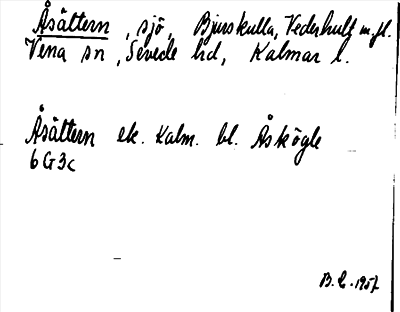 Åsältern, sjö, Bjurskulla, Vederhult m.fl.
Vena sn, Sevede hd, Kalmar l.
Åsältern ek. Kalm. bl. Åskögle
6G3c
B. L. 1957